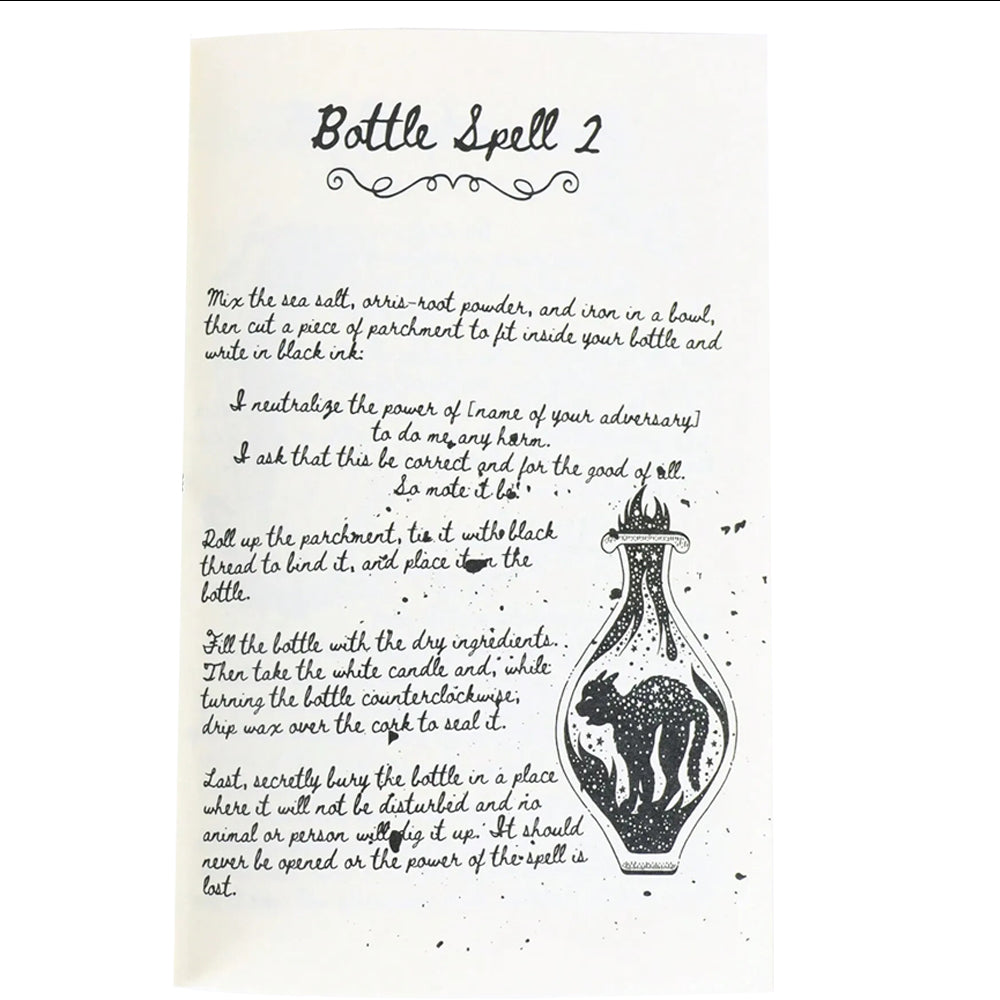 Bottle Spell 2
Mix the sea salt, orris-root powder, and iron in a bowl,
then cut a piece of parchment to fit inside your bottle and
write in black ink:
I neutralize the power of [name of your adversary]
to do me any harm.
I ask that this be correct and for the good of all.
So mote it be!
Roll up the parchment, tie it with black
thread to bind it, and place it in the
bottle.
Fill the bottle with the dry ingredients.
Then take the white candle and, while
turning the bottle counterclockwise,
drip wax over the cork to seal it.
Last, secretly bury the bottle in a place
where it will not be disturbed and no
animal or person will dig it up. It should
never be opened or the power of the spell is
lost.